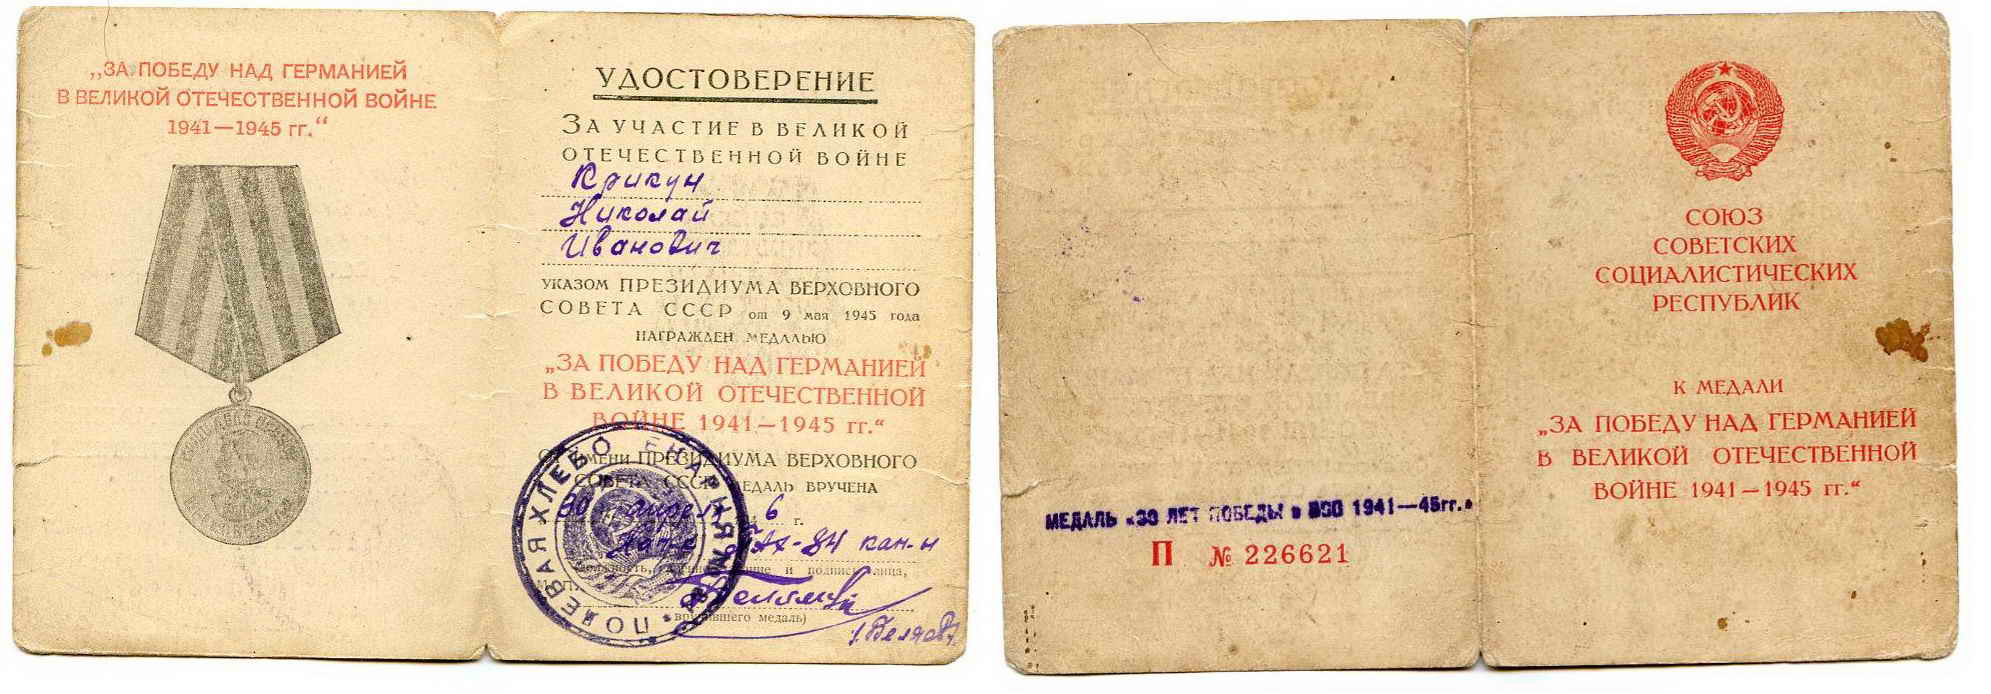 „ЗА ПОБЕДУ НАД ГЕРМАНИЕЙ
В ВЕЛИКОЙ ОТЕЧЕСТВЕННОЙ ВОЙНЕ
1941—1945 гг.“
УДОСТОВЕРЕНИЕ
ЗА УЧАСТИЕ В ВЕЛИКОЙ
ОТЕЧЕСТВЕННОЙ ВОЙНЕ
Крикун
Николай
Иванович
УКАЗОМ ПРЕЗИДИУМА ВЕРХОВНОГО
СОВЕТА СССР от 9 мая 1945 года
НАГРАЖДЕН МЕДАЛЬЮ
„ЗА ПОБЕДУ НАД ГЕРМАНИЕЙ
В ВЕЛИКОЙ ОТЕЧЕСТВЕННОЙ
ВОЙНЕ 1941—1945 гг.“
От имени ПРЕЗИДИУМА ВЕРХОВНОГО
СОВЕТА СССР МЕДАЛЬ ВРУЧЕНА
30 апреля 6 г.
и подпись лица,
вручившего медаль)
ПОЛЕВАЯ ХЛЕБОПЕКАРНЯ
СОЮЗ
СОВЕТСКИХ
СОЦИАЛИСТИЧЕСКИХ
РЕСПУБЛИК
К МЕДАЛИ
„ЗА ПОБЕДУ НАД ГЕРМАНИЕЙ
В ВЕЛИКОЙ ОТЕЧЕСТВЕННОЙ
ВОЙНЕ 1941—1945 гг.“
МЕДАЛЬ «30 ЛЕТ ПОБЕДЫ в ВОВ 1941—45гг.»
П № 226621